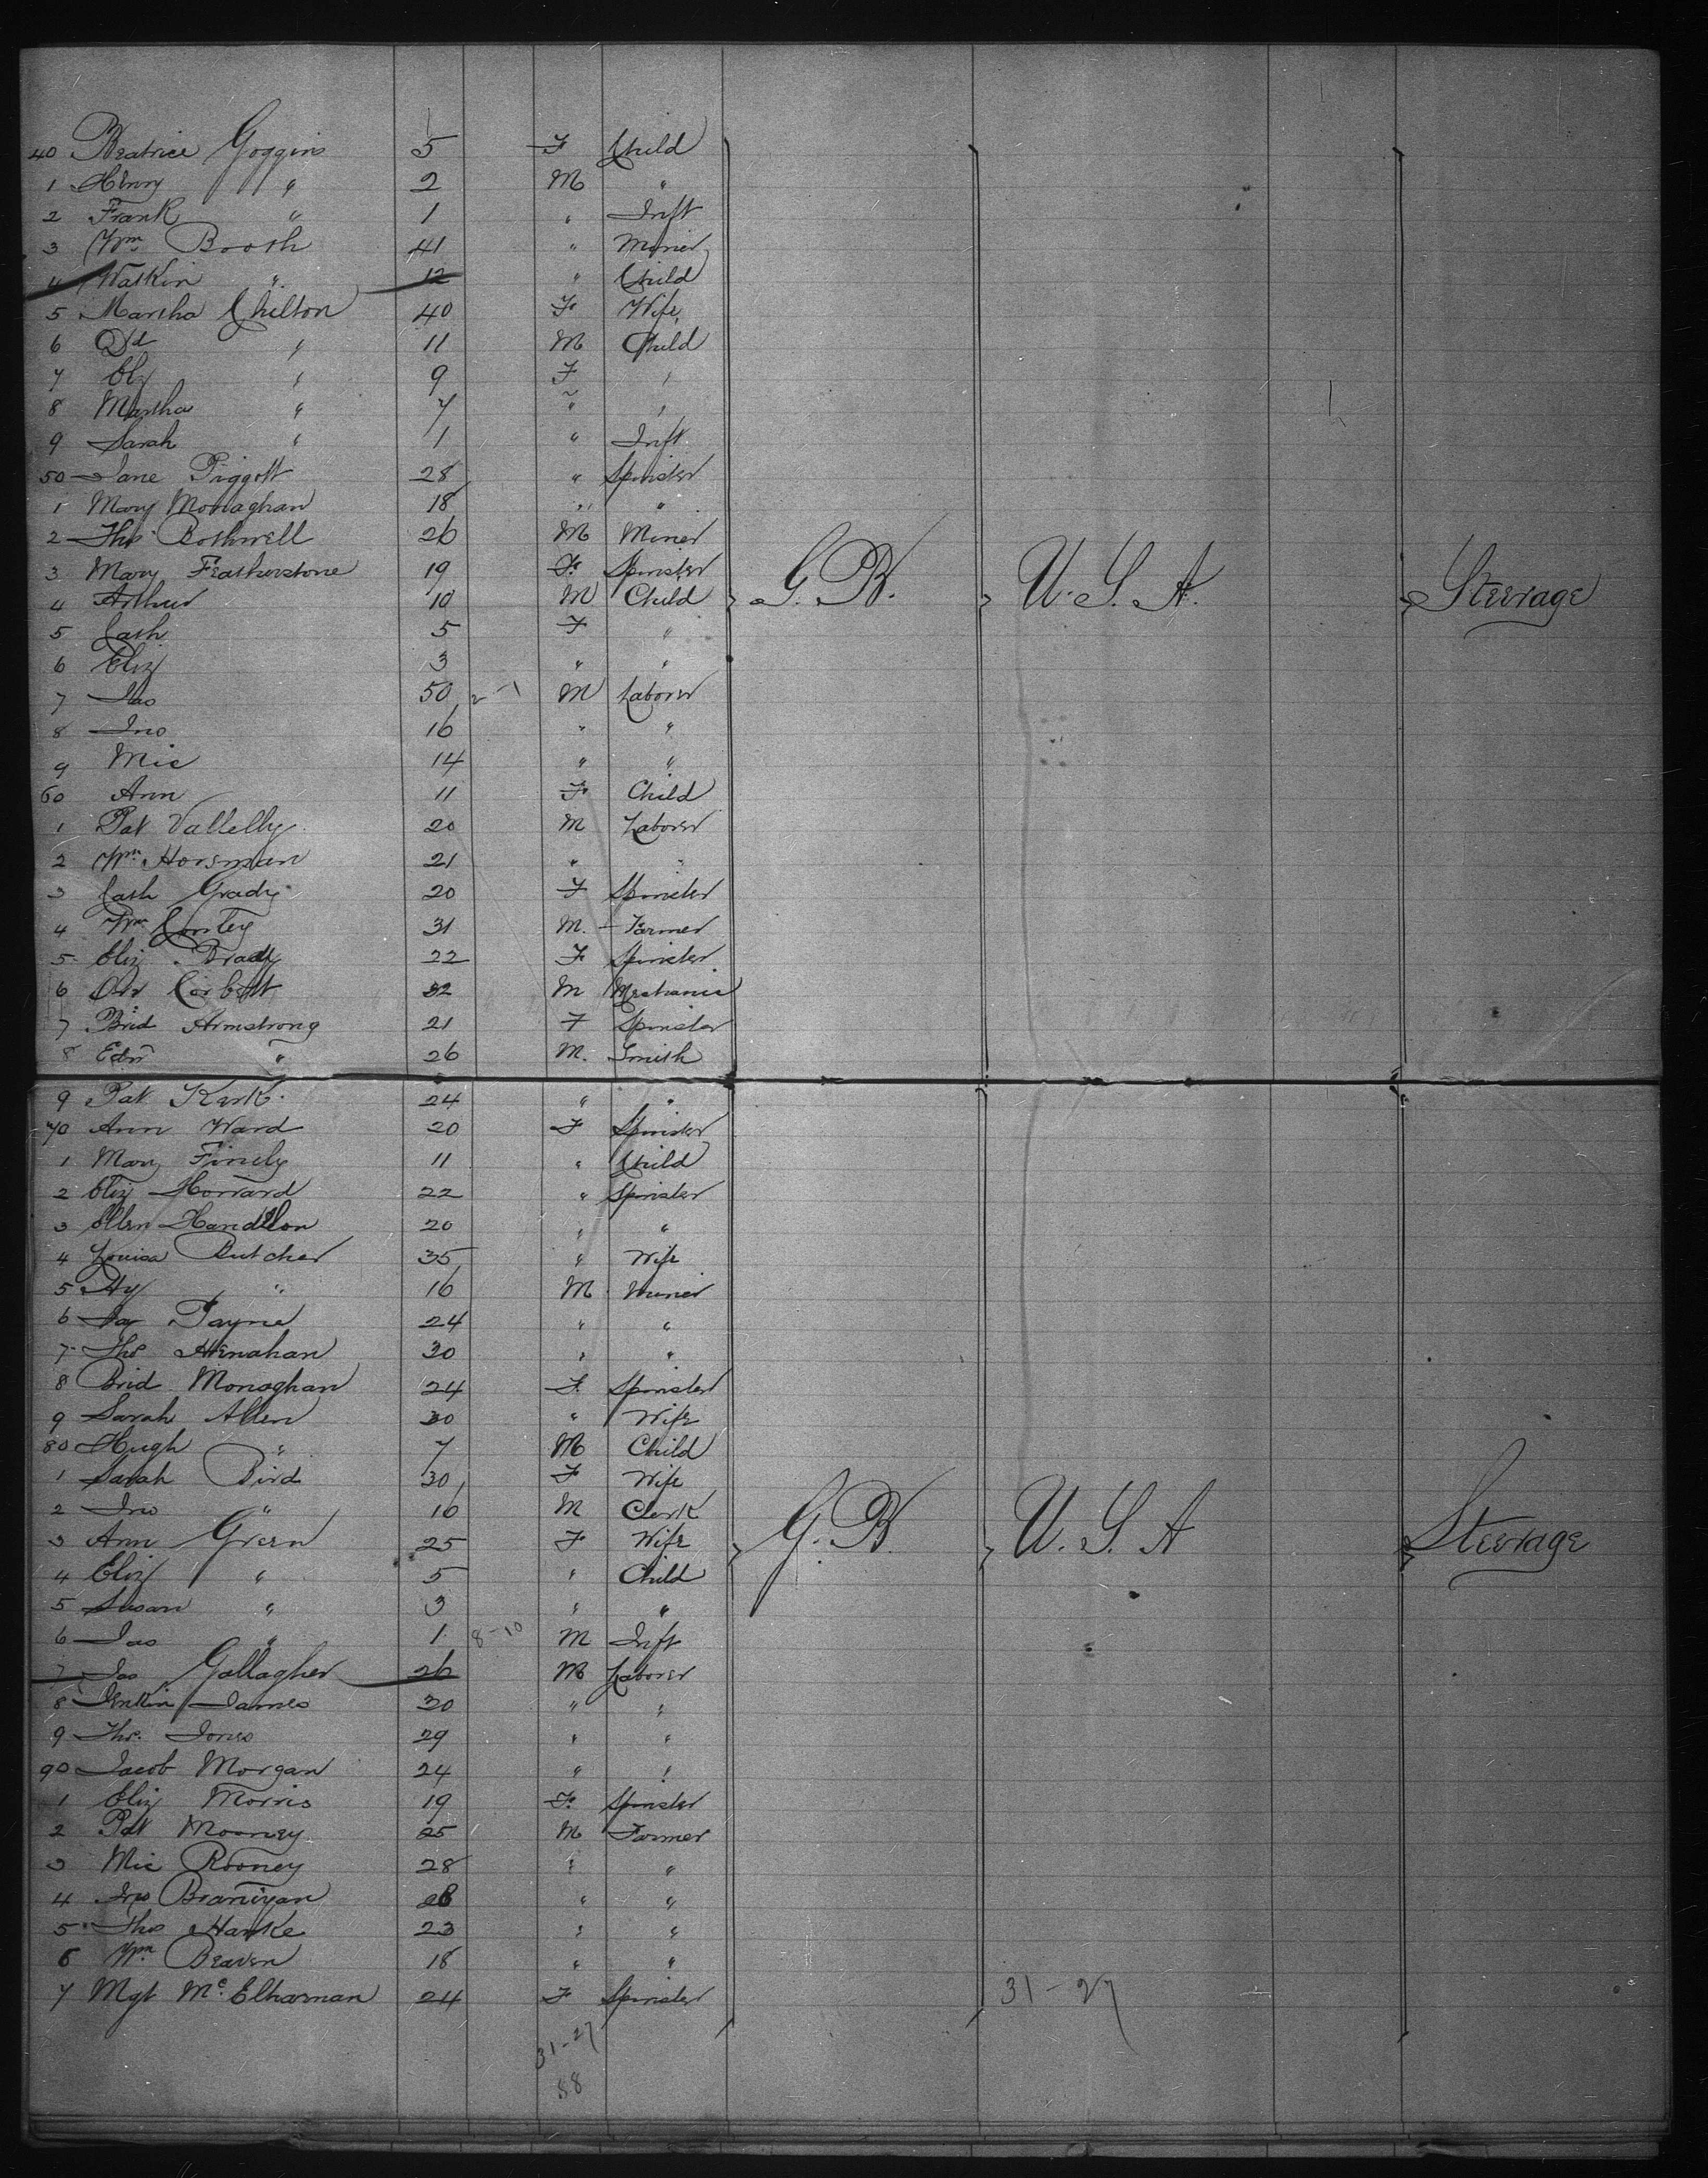 40 Beatrice Goggins 5 F Child
1 Henry " 2 M "
2 Frank " 1 " Inft
3 Wm Booth 41 " Miner
4 Watkin " 12 " Child
5 Martha Chilton 40 F Wife
6 " 11 M Child
7 Eliz " 9 F "
8 Martha " 7 " "
9 Sarah " 1 " Inft
50 Jane Piggott 28 " Spinster
1 Mary Monaghan 18 " "
2 Thos Bothwell 26 M Miner
3 Mary Featherstone 19 F Spinster
4 Arthur 10 M Child G. B. U. S. A. Steerage
5 Cath 5 F "
6 Eliz 3 " "
7 Jas 50 2-1 M Laborer
8 Jno 16 " "
9 Mic 14 " "
60 Ann 11 F Child
1 Pat Vallelly 20 M Laborer
2 Wm Horsman 21 " "
3 Cath Grady 20 F Spinster
4 Wm 31 M. Farmer
5 Eliz Brady 22 F Spinster
6 Corbett 32 M Mechanic
7 Brid Armstrong 21 F Spinster
8 Edw " 26 M. Smith
9 Pat Kirk 24 " "
70 Ann Ward 20 F Spinster
1 Mary Finely 11 " Child
2 Eliz Howard 22 " Spinster
3 Ellen 20 " "
4 Louisa Butcher 35 " Wife
5 Hy " 16 M Miner
6 Payne 24 " "
7 Thos Henahan 30 " "
8 Brid Monaghan 24 F Spinster
9 Sarah Allen 30 " Wife
80 Hugh " 7 M Child
1 Sarah Bird 30 F Wife
2 Jno " 16 M Clerk
3 Ann Green 25 F Wife G. B. U. S. A Steerage
4 Eliz " 5 " Child
5 Susan " 3 " "
6 Jas " 1 8-10 M Inft
7 Jas Gallagher 26 M Laborer
8 Jenkin James 30 " "
9 Thos. Jones 29 " "
90 Jacob Morgan 24 " "
1 Eliz Morris 19 F. Spinster
2 Pat Mooney 25 M Farmer
3 Mic Rooney 28 " "
4 Jno Branigan " "
5 Thos Hanke 23 " "
6 Wm Beaven 18 " "
7 Mgt McElharnan 24 F Spinster 31-27
31-27
88